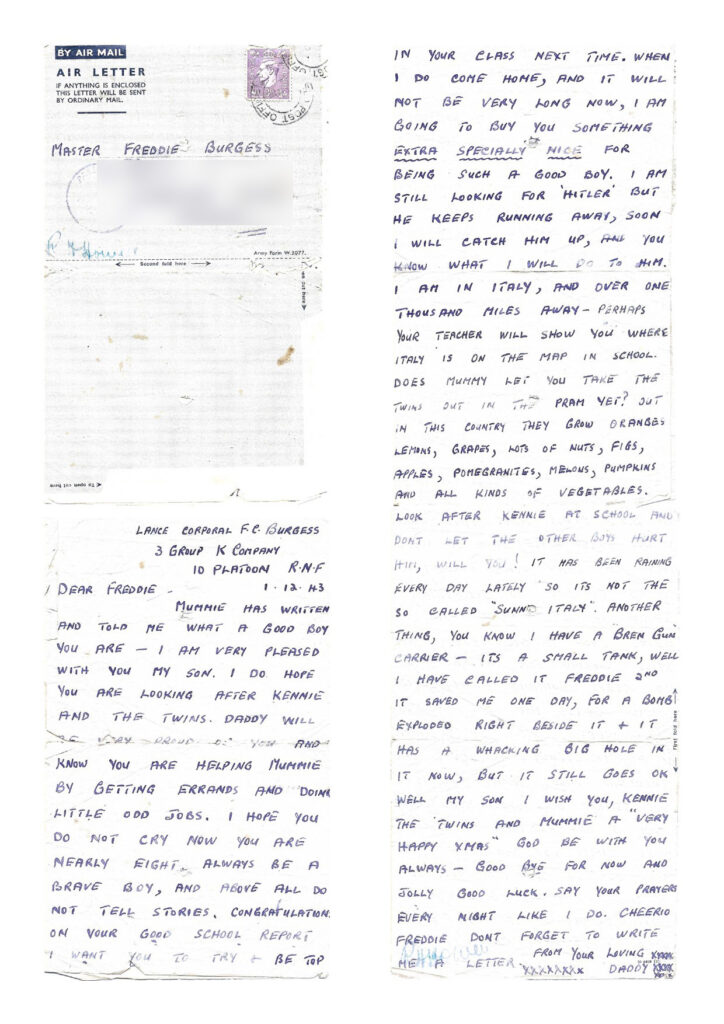 BY AIR MAIL
AIR LETTER
IF ANYTHING IS ENCLOSED
THIS LETTER WILL BE SENT
BY ORDINARY MAIL.
POST OFFICE
MASTER FREDDIE BURGESS
Army Form W.3077.
Second fold here
To open cut here
LANCE CORPORAL F.C. BURGESS
3 GROUP K COMPANY
10 PLATOON R.N.F
1.12.43
DEAR FREDDIE -
MUMMIE HAS WRITTEN
AND TOLD ME WHAT A GOOD BOY
YOU ARE - I AM VERY PLEASED
WITH YOU MY SON. I DO HOPE
YOU ARE LOOKING AFTER KENNIE
AND THE TWINS. DADDY WILL
BE VERY PROUD OF YOU AND
KNOW YOU ARE HELPING MUMMIE
BY GETTING ERRANDS AND DOING
LITTLE ODD JOBS. I HOPE YOU
DO NOT CRY NOW YOU ARE
NEARLY EIGHT, ALWAYS BE A
BRAVE BOY, AND ABOVE ALL DO
NOT TELL STORIES. CONGRATULATION
ON YOUR GOOD SCHOOL REPORT
I WANT YOU TO TRY + BE TOP
IN YOUR CLASS NEXT TIME. WHEN
I DO COME HOME, AND IT WILL
NOT BE VERY LONG NOW, I AM
GOING TO BUY YOU SOMETHING
EXTRA SPECIALLY NICE FOR
BEING SUCH A GOOD BOY. I AM
STILL LOOKING FOR 'HITLER' BUT
HE KEEPS RUNNING AWAY, SOON
I WILL CATCH HIM UP, AND YOU
KNOW WHAT I WILL DO TO HIM.
I AM IN ITALY, AND OVER ONE
THOUSAND MILES AWAY - PERHAPS
YOUR TEACHER WILL SHOW YOU WHERE
ITALY IS ON THE MAP IN SCHOOL.
DOES MUMMY LET YOU TAKE THE
TWINS OUT IN THE PRAM YET? OUT
IN THIS COUNTRY THEY GROW ORANGES
LEMONS, GRAPES, LOTS OF NUTS, FIGS,
APPLES, POMEGRANITES, MELONS, PUMPKINS
AND ALL KINDS OF VEGETABLES.
LOOK AFTER KENNIE AT SCHOOL AND
DONT LET THE OTHER BOYS HURT
HIM, WILL YOU! IT HAS BEEN RAINING
EVERY DAY LATELY SO ITS NOT THE
SO CALLED "SUNNY ITALY". ANOTHER
THING, YOU KNOW I HAVE A BREN GUN
CARRIER - ITS A SMALL TANK, WELL
I HAVE CALLED IT FREDDIE 2ND
IT SAVED ME ONE DAY, FOR A BOMB
EXPLODED RIGHT BESIDE IT + IT
HAS A WHACKING BIG HOLE IN
IT NOW, BUT IT STILL GOES OK
WELL MY SON I WISH YOU, KENNIE
THE TWINS AND MUMMIE A "VERY
HAPPY XMAS" GOD BE WITH YOU
ALWAYS - GOOD BYE FOR NOW AND
JOLLY GOOD LUCK. SAY YOUR PRAYERS
EVERY NIGHT LIKE I DO. CHEERIO
FREDDIE DONT FORGET TO WRITE
ME A LETTER FROM YOUR LOVING
XXXXXXX DADDY XXXX
First fold here